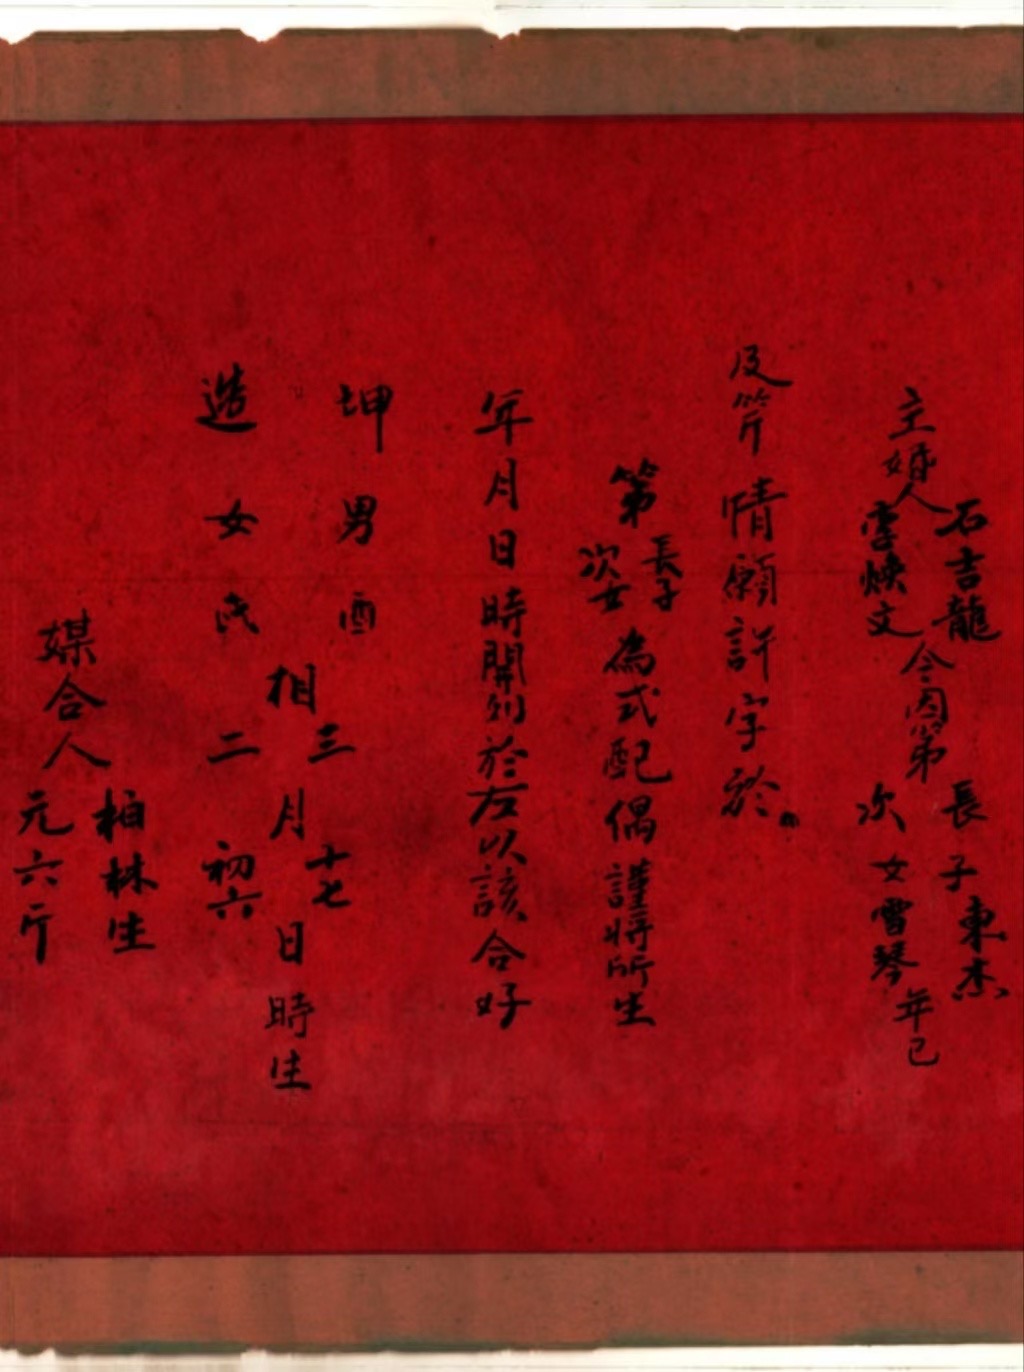 主婚人 石吉龍 李煥文 今因第 長子東杰 次女雪琴 年已
及笄情願許字於
第 長子 次女 為式配偶謹將所生
年月日時開列於左以該合好
坤 男酉 三 十七
相 月 日時生
造 女 二 初六
媒合人 柏林生 元六斤